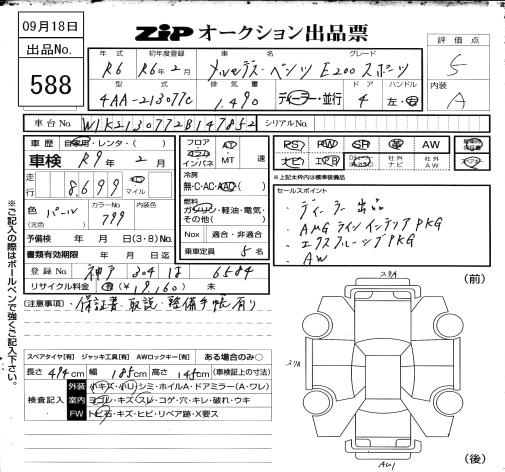 09月18日
ZIP オークション出品票
出品No.
588
評価点
5
内装
A
年式 初年度登録 車名 グレード
R6 R6年2月 メルセデス・ベンツ E200 スポーツ
型式 排気量 ドア ハンドル
4AA-213077C 1,490 ディーラー・並行 4 左・右
車台No. W1K2130772B147852 シリアルNo.
車歴 自家用・レンタ・( )
車検 R9年 2月
走行 8,699 キロ マイル
色(元色) パール カラーNo. 799 内装色
予備検 年 月 日(3・8)No.
書類有効期限 年 月 日迄
登録No. 神戸 304 は 6584
リサイクル料金 有(¥19,160) 未
フロア コラム インパネ AT・MT 速
冷房 無・C・AC・AAC
燃料 ガソリン・軽油・電気・その他( )
Nox 適合・非適合
乗車定員 5名
PS PW SR 革 AW
ナビ 社外ナビ 社外AW
※上記太枠内は標準装備品
セールスポイント
・ディーラー出品
・AMGラインインテリアPKG
・エクスクルーシブPKG
・AW
注意事項・保証書・取説・整備手帳有り
※ご記入の際はボールペンで強くご記入下さい。
スペアタイヤ[有] ジャッキ工具[有] AWロックキー[有] ある場合のみ○
長さ 494cm 幅 185cm 高さ 145cm (車検証上の寸法)
検査記入
外装 小キズ・小凹・シミ・ホイルA・ドアミラー(A・ワレ)
室内 ヨゴレ・キズ・スレ・コゲ・穴・キレ・破れ・ウキ
FW トビ石・キズ・ヒビ・リペア跡・X要ス
(前)
スリA
スリA
AU1
(後)